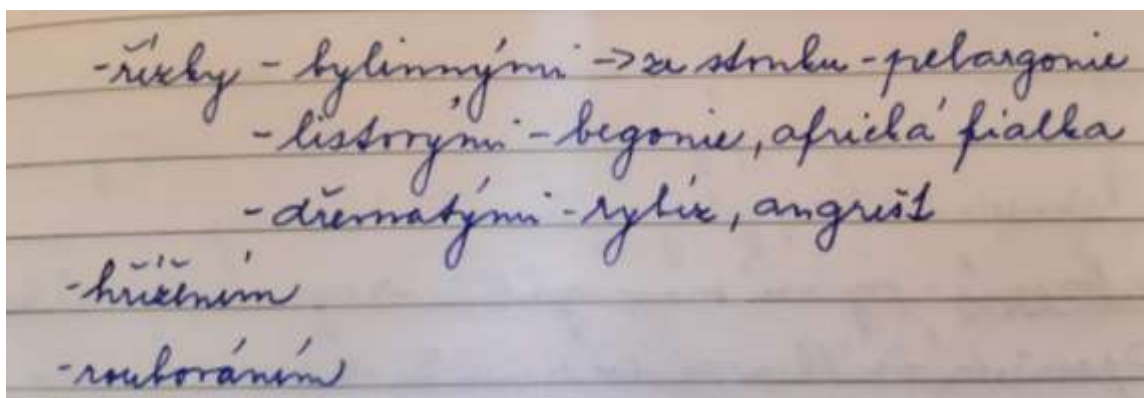 - řízky - bylinnými -> ze stonku - pelargonie
- listovými - begonie, africká fialka
- dřevnatými - rybíz, angrešt
- hřížením
- roubováním